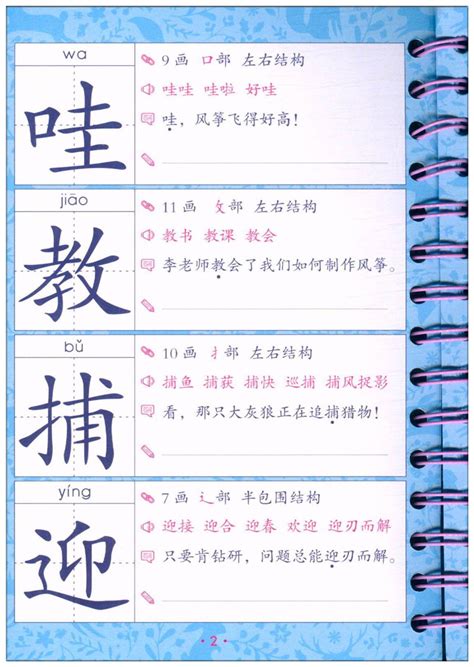 wa
哇
9画 口部 左右结构
哇哇 哇啦 好哇
哇，风筝飞得好高！
jiāo
教
11画 攵部 左右结构
教书 教课 教会
李老师教会了我们如何制作风筝。
bǔ
捕
10画 扌部 左右结构
捕鱼 捕获 捕快 巡捕 捕风捉影
看，那只大灰狼正在追捕猎物！
yíng
迎
7画 辶部 半包围结构
迎接 迎合 迎春 欢迎 迎刃而解
只要肯钻研，问题总能迎刃而解。
·2·